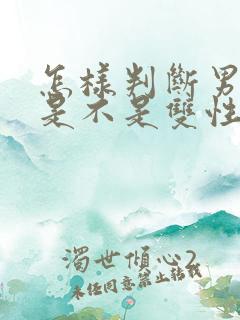 怎樣判斷男
是不是雙性
濁世傾心2
未任同意禁止轉載